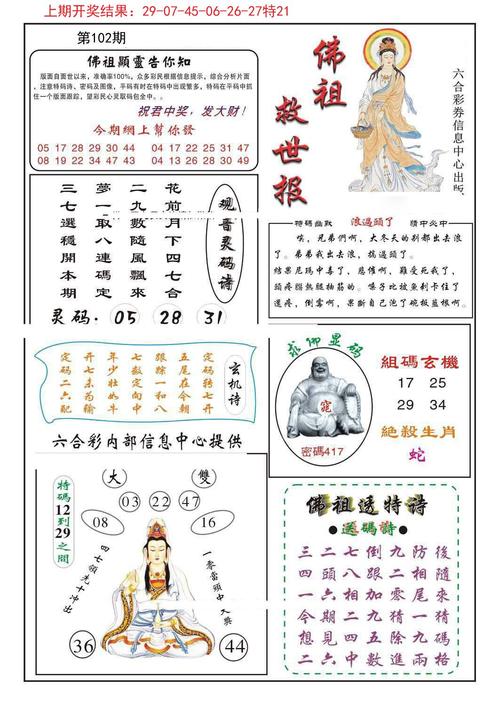 上期开奖结果：29-07-45-06-26-27特21
第102期
佛祖顯靈告你知
版面自面世以来，准确率100%，众多彩民根据信息提示，综合分析片面
，注意特码诗、密码及图像，平码有时在特码中出现繁多，特码在平码中抓
住一个版面跟踪，望彩民心灵取码包全中。。
祝君中奖，发大财！
今期網上幫你發
05 17 28 29 30 44 04 17 22 25 31 47
08 19 22 34 47 43 12 33 42 44 47 49
佛祖
救世报
六合彩券信息中心出版
观音灵码诗
花前月下四七合
二九數隨風飄來
夢一取八連碼定
三七選穩開本期
灵码：05 28 31
特碼幽默 浪過頭了 猜中必中
唉，兄弟們啊，大冬天的别都出去浪
了。弟弟我出去浪，搞過頭了。
结果尼玛中毒了，悲催啊，難受死我了，
頭疼腦熱骶抽筋的。嗓子比放魚刺卡住了
還疼，倒霉啊，果断自己泡了碗板藍根啊。
玄机诗
定码转七开
五尾在今期
跟踪一和八
年少壮如牛
开七未为输
定码二六配
六合彩内部信息中心提供
求佛显码
密碼417
組碼玄機
17 25
29 34
絶殺生肖
蛇
特碼12到29之間
大 雙
03 22 47
08 16
四七领先十冲出
36 44
佛祖透特诗
送碼詩
三二七倒九防後
四頭八跟二相隨
一六相加零尾來
今期二九猜一猜
想見四五除九碼
二六中數進兩格